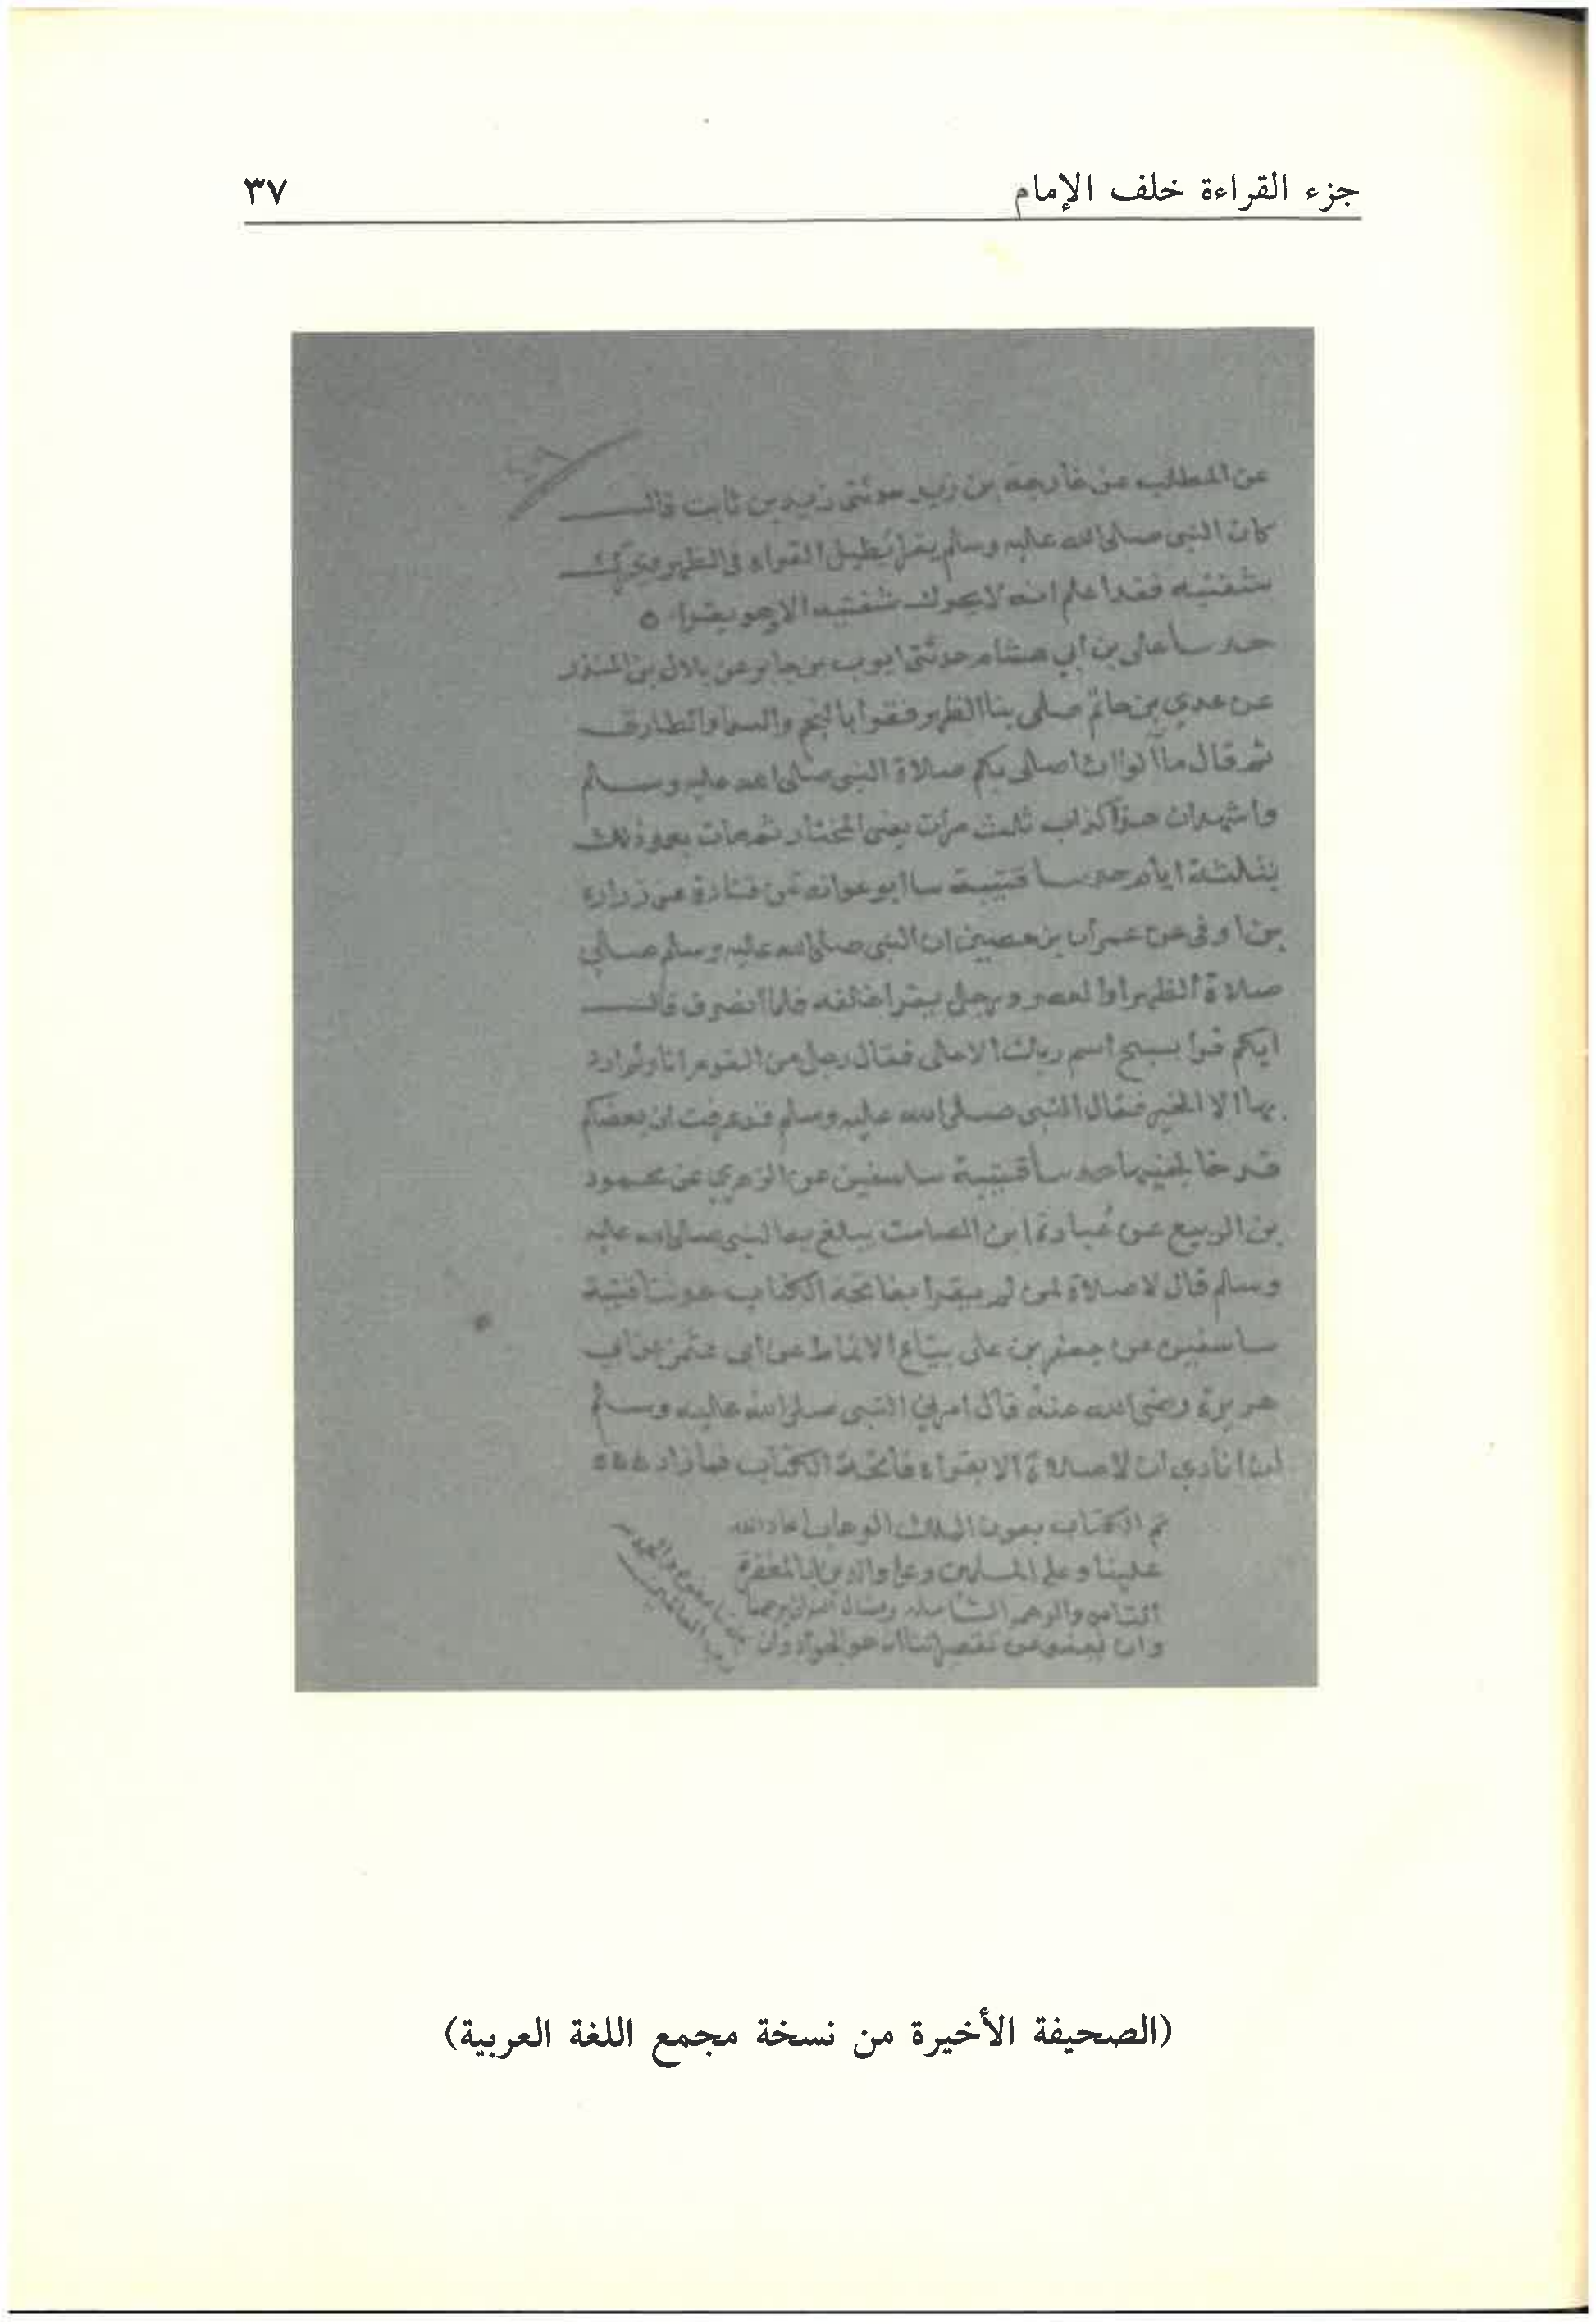 جزء القراءة خلف الإمام
٣٧
عن المطلب عن خارجة بن زيد حدثنى زيد بن ثابت قال
كان النبى صلى الله عليه وسلم يطيل القراءة فى الظهر
شفتيه فقد اعلم انه لا يحرك شفتيه الا وهو يقرا
على بن ابي هشام حدثنى ايوب بن جابر عن بلال بن المنذر
عن عدي بن حاتم صلى بنا الظهر فقرا بالنجم والسما والطارق
ثم قال ما آلوا ان اصلى بكم صلاة النبى صلى الله عليه وسلم
واشهد ان هذا كذاب ثلث مرات يعنى المختار ثم مات بعد ذلك
بثلثة ايام قتيبة سا ابو عوانه عن قتادة عن زرارة
بن اوفى عن عمران بن حصين ان النبى صلى الله عليه وسلم صلى
صلاة الظهر او العصر ورجل يقرا خلفه فلما انصرف قال
ايكم قرا بسبح اسم ربك الاعلى فقال رجل من القوم انا ولم ارد
بها الا الخير فقال النبى صلى الله عليه وسلم قد عرفت ان بعضكم
قد خالجنيها قتيبة سا سفين عن الزهري عن محمود
بن الربيع عن عبادة ابن الصامت يبلغ به النبى صلى الله عليه
وسلم قال لا صلاة لمن لم يقرا بفاتحة الكتاب قتيبة
سا سفين عن جعفر بن على بياع الانماط عن ابى عثمن عن ابي
هريرة رضى الله عنه قال امرني النبى صلى الله عليه وسلم
ان انادي ان لا صلاة الا بقراءة فاتحة الكتاب فما زاد
تم الكتاب بعون الملك الوهاب اعاد الله
علينا وعلى المسلمين وعلى والدينا بالمغفرة
(الصحيفة الأخيرة من نسخة مجمع اللغة العربية)